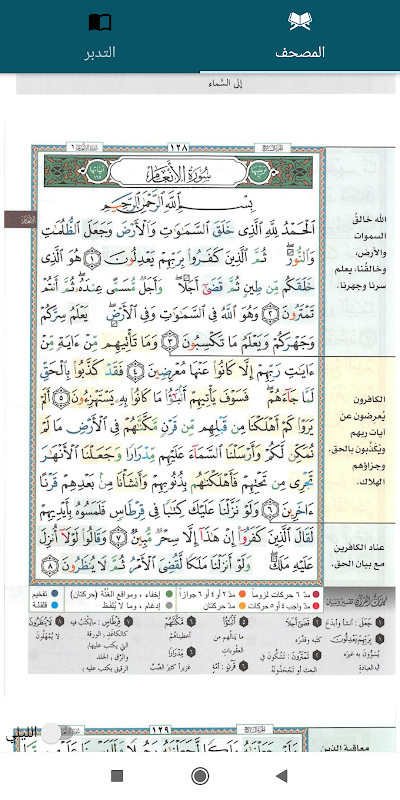 المصحف
التدبر
إلى السَّماء
١٢٨
سُورَةُ الأَنْعَامِ
بِسْمِ اللَّهِ الرَّحْمَٰنِ الرَّحِيمِ
الْحَمْدُ لِلَّهِ الَّذِى خَلَقَ السَّمَٰوَٰتِ وَالْأَرْضَ وَجَعَلَ الظُّلُمَٰتِ
وَالنُّورَ ۖ ثُمَّ الَّذِينَ كَفَرُوا بِرَبِّهِمْ يَعْدِلُونَ ١ هُوَ الَّذِى
خَلَقَكُم مِّن طِينٍ ثُمَّ قَضَىٰٓ أَجَلًا ۖ وَأَجَلٌ مُّسَمًّى عِندَهُۥ ۖ ثُمَّ أَنتُمْ
تَمْتَرُونَ ٢ وَهُوَ اللَّهُ فِى السَّمَٰوَٰتِ وَفِى الْأَرْضِ ۖ يَعْلَمُ سِرَّكُمْ
وَجَهْرَكُمْ وَيَعْلَمُ مَا تَكْسِبُونَ ٣ وَمَا تَأْتِيهِم مِّنْ ءَايَةٍ مِّنْ
ءَايَٰتِ رَبِّهِمْ إِلَّا كَانُوا عَنْهَا مُعْرِضِينَ ٤ فَقَدْ كَذَّبُوا بِالْحَقِّ
لَمَّا جَآءَهُمْ ۖ فَسَوْفَ يَأْتِيهِمْ أَنۢبَٰٓؤُا مَا كَانُوا بِهِۦ يَسْتَهْزِءُونَ ٥ أَلَمْ
يَرَوْا كَمْ أَهْلَكْنَا مِن قَبْلِهِم مِّن قَرْنٍ مَّكَّنَّٰهُمْ فِى الْأَرْضِ مَا لَمْ
نُمَكِّن لَّكُمْ وَأَرْسَلْنَا السَّمَآءَ عَلَيْهِم مِّدْرَارًا وَجَعَلْنَا الْأَنْهَٰرَ
تَجْرِى مِن تَحْتِهِمْ فَأَهْلَكْنَٰهُم بِذُنُوبِهِمْ وَأَنشَأْنَا مِنۢ بَعْدِهِمْ قَرْنًا
ءَاخَرِينَ ٦ وَلَوْ نَزَّلْنَا عَلَيْكَ كِتَٰبًا فِى قِرْطَاسٍ فَلَمَسُوهُ بِأَيْدِيهِمْ
لَقَالَ الَّذِينَ كَفَرُوٓا إِنْ هَٰذَآ إِلَّا سِحْرٌ مُّبِينٌ ٧ وَقَالُوا لَوْلَآ أُنزِلَ
عَلَيْهِ مَلَكٌ ۖ وَلَوْ أَنزَلْنَا مَلَكًا لَّقُضِىَ الْأَمْرُ ثُمَّ لَا يُنظَرُونَ ٨
الله خالقُ
السموات
والأرض،
وخالقُنا، يعلم
سرنا وجهرنا.
الكافرون
يُعرضون عن
آيات ربهم
ويُكذِّبون بالحق.
وجزاؤهم
الهلاك.
عناد الكافرين
مع بيان الحق.
مدّ ٦ حركات لزوماً
مدّ ٢ أو ٤ أو ٦ جوازاً
إخفاء ، ومواقع الغُنَّة (حركتان)
تفخيم
مدّ واجب ٤ أو ٥ حركات
مدّ حركتان
إدغام ، وما لا يُلفَظ
قلقلة
١٢٩
الليلي
معاقبة الذين